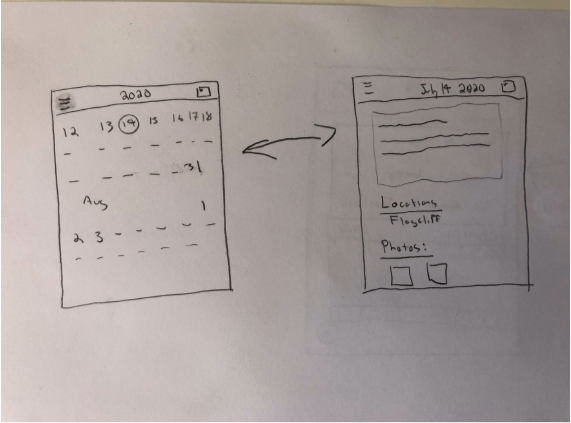 2020
12 13 14 15 16 17 18
31
Aug
1
2 3
July 14 2020
Locations
Flagcliff
Photos: